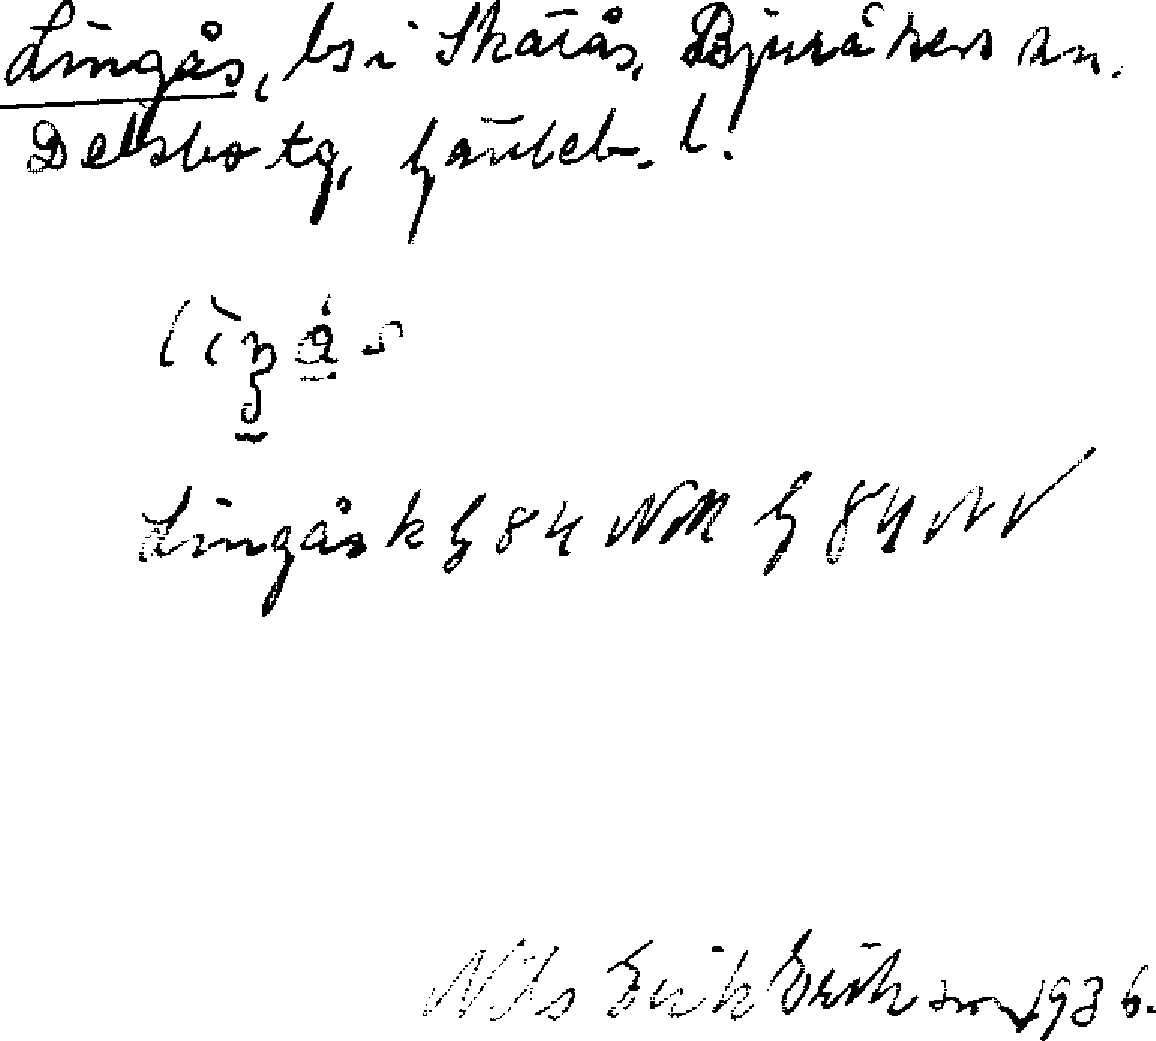 Lingås, bs i Skatås, Bjuråkers sn.
Delsbo tg, Gävleb. l.
Lingås k G 84 NM G 84 NV
Nils Erik Erikson 1936.